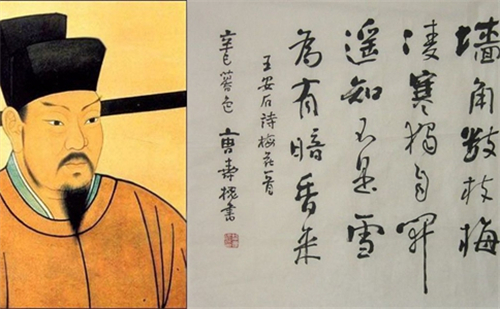 墙角数枝梅
凌寒獨自開
遥知不是雪
為有暗香来
王安石诗梅花一首
辛巳 書